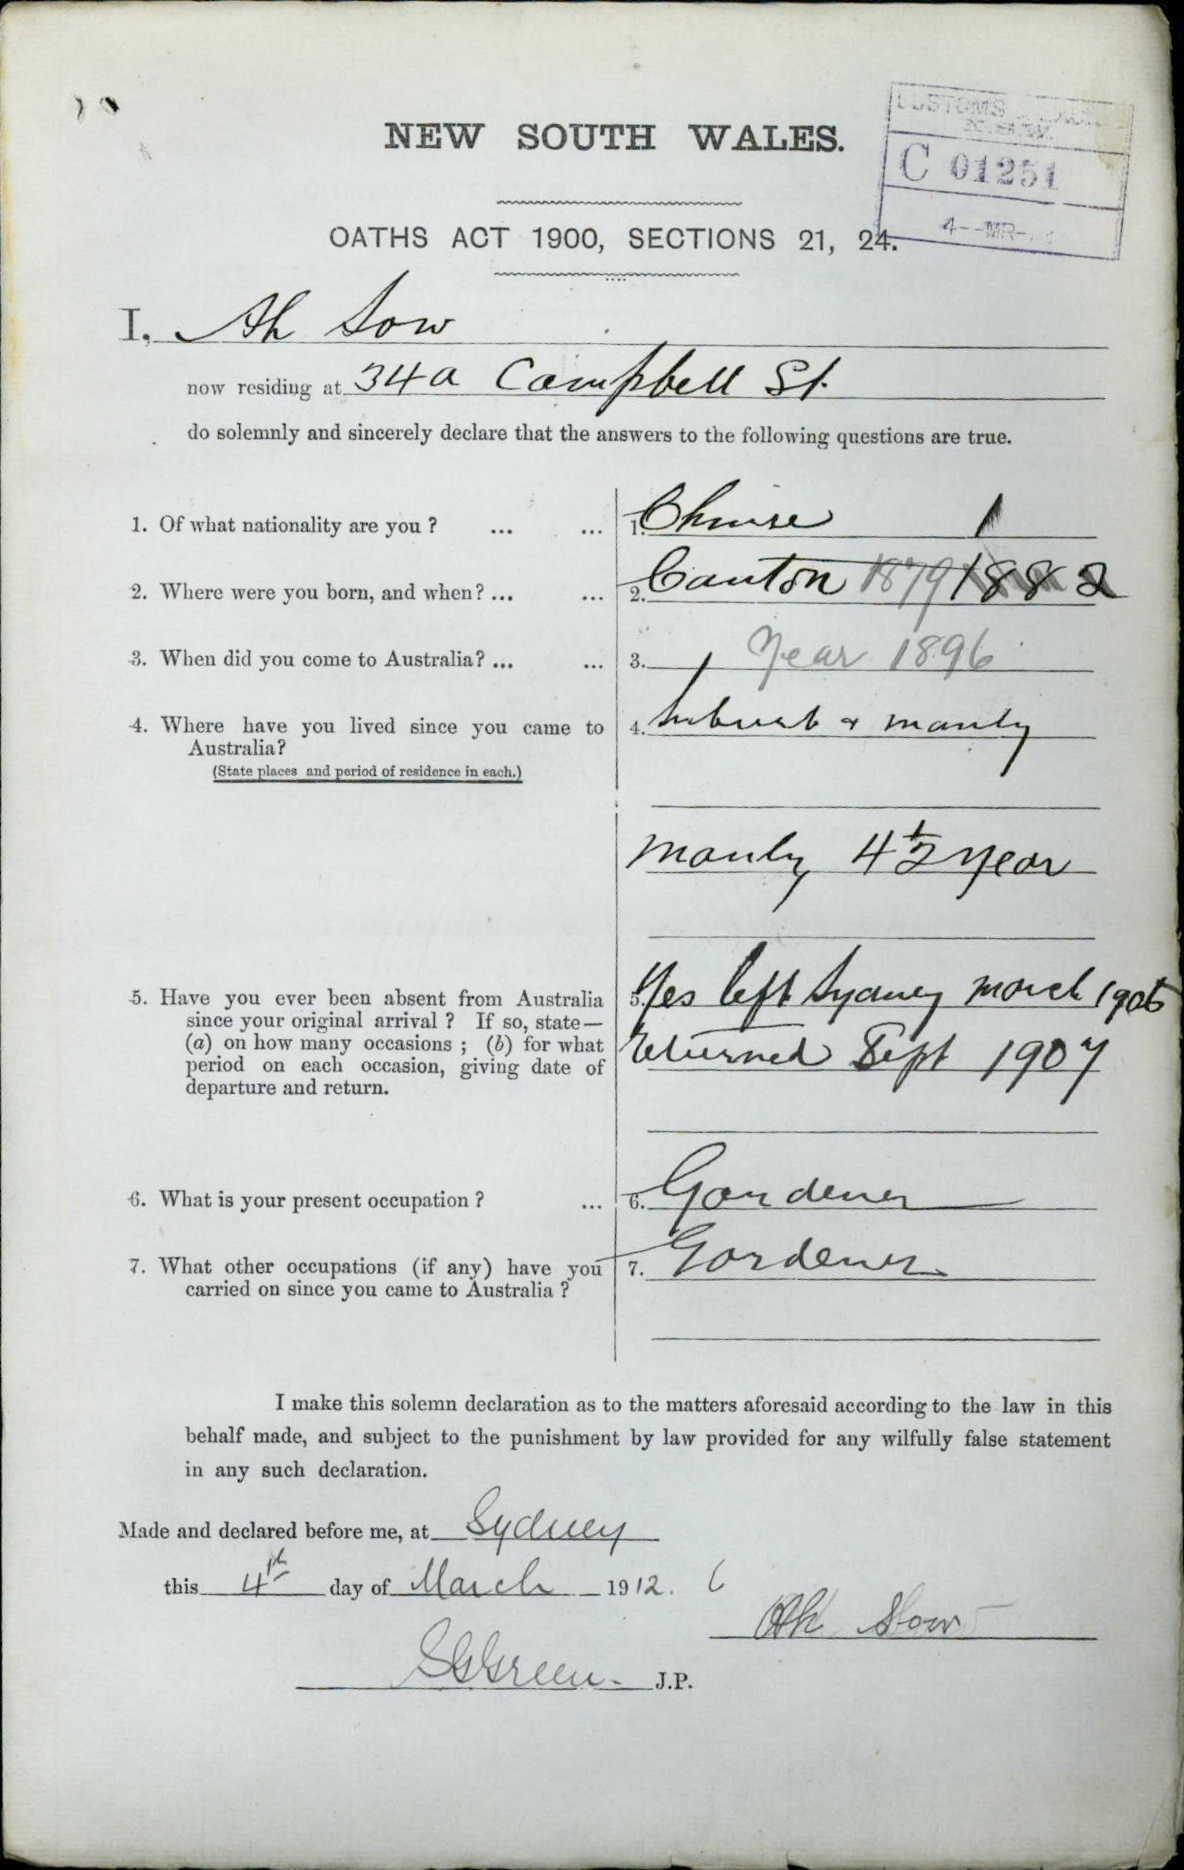 CUSTOMS
C 01251
4--MR-
NEW SOUTH WALES.
OATHS ACT 1900, SECTIONS 21, 24.
I, Ah Sow
now residing at 34a Campbell St.
do solemnly and sincerely declare that the answers to the following questions are true.
1. Of what nationality are you ? ... ... 1. Chinese
2. Where were you born, and when? ... ... 2. Canton 1879 1882
3. When did you come to Australia? ... ... 3. Year 1896
4. Where have you lived since you came to 4. Suburb & Manly
Australia?
(State places and period of residence in each.)
Manly 4½ Year
5. Have you ever been absent from Australia 5. Yes left Sydney March 1906
since your original arrival ? If so, state—
(a) on how many occasions ; (b) for what returned Sept 1907
period on each occasion, giving date of
departure and return.
6. What is your present occupation ? ... 6. Gardener
7. What other occupations (if any) have you 7. Gardener
carried on since you came to Australia ?
I make this solemn declaration as to the matters aforesaid according to the law in this
behalf made, and subject to the punishment by law provided for any wilfully false statement
in any such declaration.
Made and declared before me, at Sydney
this 4th day of March 1912.
Ah Sow
Green J.P.